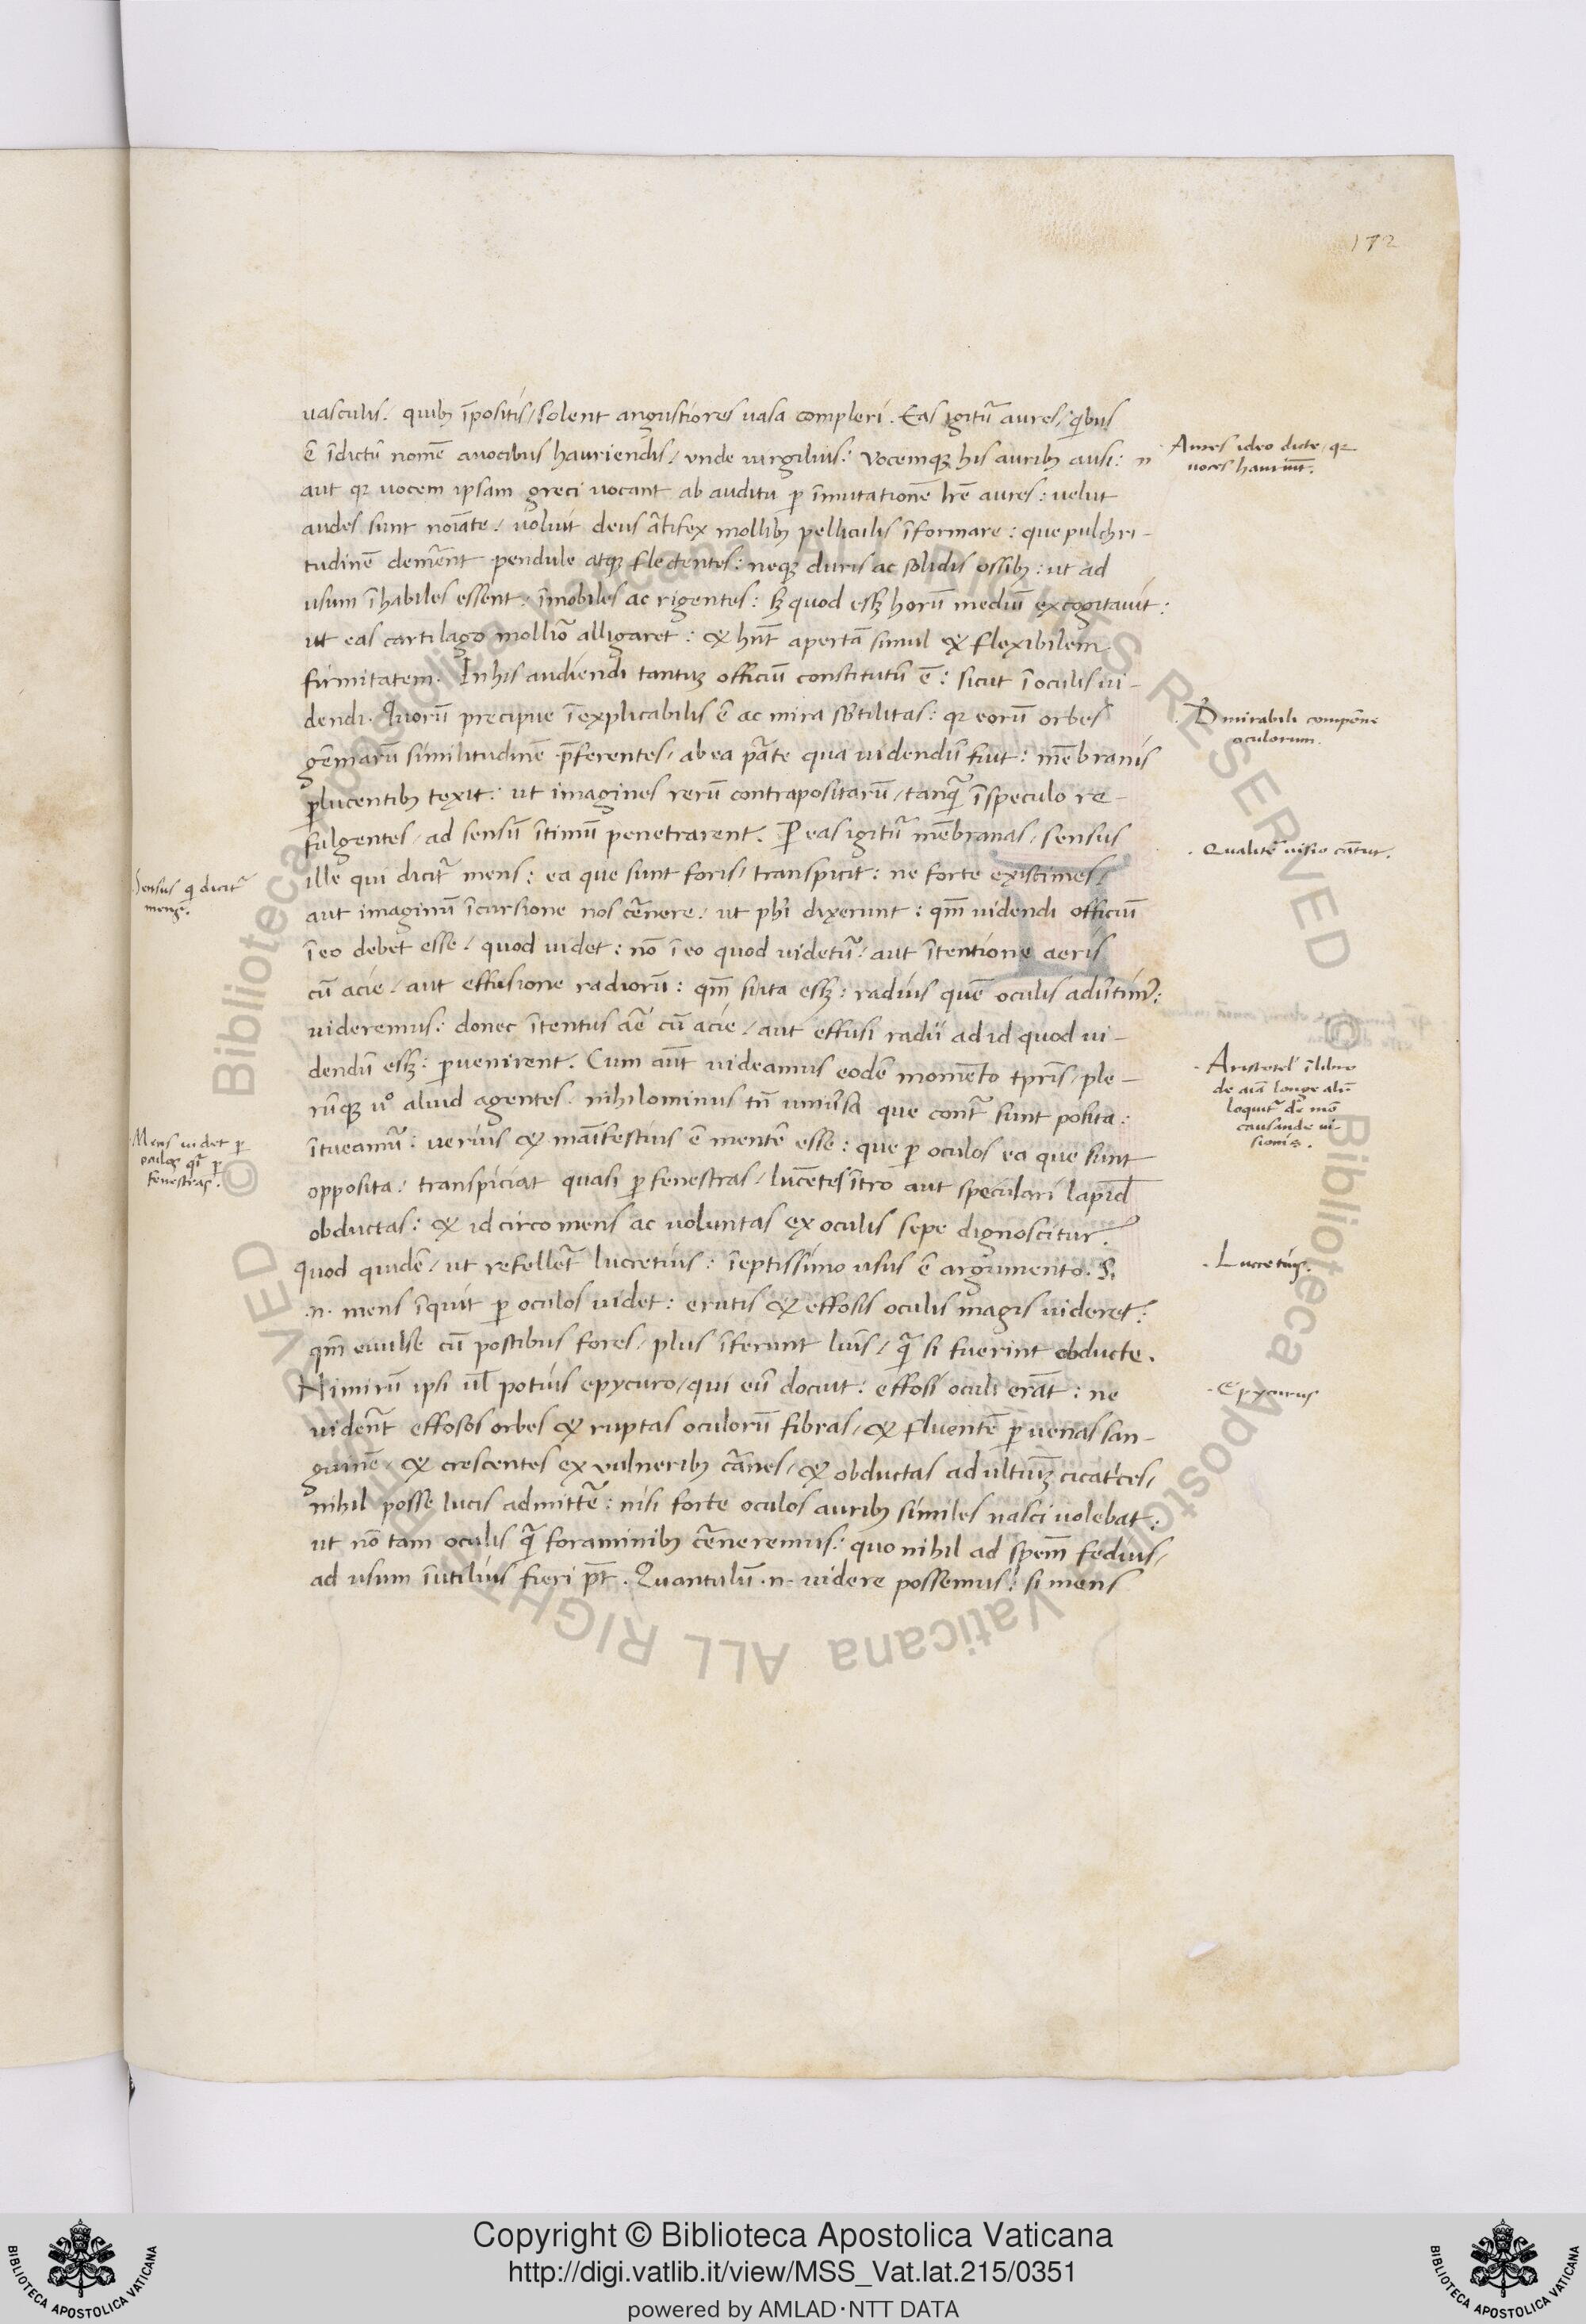 172
uasculis. quibꝫ īpositis / solent angustiores uasa compleri. Eas igitur̃ aures / qͥbus
ē īdictū nomē a uocibus hauriendis / vnde uirgilius: Vocemqꝫ his auribꝫ ausi:
aut qꝛ uocem ipsam greci uocant ab auditu ꝑ īmutationē lr̄e aures: uelut
audes sunt noīate / uoluit deus ar̄tifex mollibꝫ pelliculis īformare: que pulchri-
tudinē demer̄ent pendule atqꝫ flectentes: neqꝫ duris ac solidis ossibꝫ: ut ad
usum īhabiles essent: īmobiles ac rigentes: sꝫ quod essꝫ horū mediū excogitauit:
ut eas cartilago mollior̄ alligaret: & hr̄nt apertā simul & flexibilem
firmitatem. In his audiendi tantuꝫ officiū constitutū ē: sicut ī oculis ui-
dendi. Quorū precipue īexplicabilis ē ac mira sbtilitas: qꝛ eorū orbes
gēmarū similitudinē p̄ferentes / ab ea par̄te qua uidendū fuit: mēbranis
ꝑlucentibꝫ texit: ut imagines rerū contrapositarū / tanqꝫ ī speculo re-
fulgentes / ad sensū ītimū penetrarent. Per eas igitur̃ mēbranas / sensus
ille qui dicitur̃ mens: ea que sunt foris / transpicit: ne forte existimes /
aut imaginū īcursione nos cer̄nere / ut phi dixerunt: qm̄ uidendi officiū
ī eo debet esse / quod uidet: nō ī eo quod uidetur̃ / aut ītentione aeris
cū acie / aut effusione radiorū: qm̄ si ita essꝫ: radius quē oculis aduer̄timꝰ:
uideremus: donec ītentus aēr cū acie / aut effusi radii ad id quod ui-
dendū essꝫ: ꝑuenirent. Cum aūt uideamus eodē momēto tꝑris / ple-
rūqꝫ uͦ aliud agentes. nihilominus tn̄ uniuer̄sa que contra sunt posita:
ītueamur̃: uerius & manīfestius ē mentē esse: que ꝑ oculos ea que sunt
opposita / transpiciat quasi ꝑ fenestras / lucētes ītro aut speculari lapid
obductas: & id circo mens ac uoluntas ex oculis sepe dignoscitur.
Quod quidē / ut refeller̄et lucretius: īeptissimo usus ē argumento. S.
.n. mens īquit ꝑ oculos uidet: erutis & effosis oculis magis uideret:
qm̄ euulse cū postibus fores / plus īferunt luīs / qꝫ si fuerint obducte.
Nimirū ipsi ul̄ potius epycuro / qui eū docuit: effosi oculi erāt: ne
uider̄ent effosos orbes & ruptas oculorū fibras / & fluentē ꝑ uenas san-
guinē / & crescentes ex vulneribꝫ cārnes / & obductas ad ultimūꝫ cicatces /
nihil posse lucis admitter̄e: nisi forte oculos auribꝫ similes nasci uolebat:
ut nō tam oculis qꝫ foraminibꝫ cer̄neremus: quo nihil ad spem̄ fedius /
ad usum īutilius fieri pt̄. Quantulū .n. videre possemus: si mens
Aures ideo dicte / qꝛ
uoces hauriūt.
D mirabili compōne
oculorum.
Qualitēr uisio cāntur.
Sensus qͥ dicitur̃
mens.
Aristotel' ī libro
de aīa longe alit̄
loquitur̃ de mō
causande ui-
sionis.
Mens uidet ꝑ
oculos qͣi ꝑ
fenestras.
Lucretius.
Epycurus
Copyright © Biblioteca Apostolica Vaticana
http://digi.vatlib.it/view/MSS_Vat.lat.215/0351
powered by AMLAD·NTT DATA
BIBLIOTECA APOSTOLICA VATICANA
BIBLIOTECA APOSTOLICA VATICANA
© Biblioteca Apostolica Vaticana ALL RIGHTS RESERVED © Biblioteca Apostolica Vaticana ALL RIGHTS RESERVED